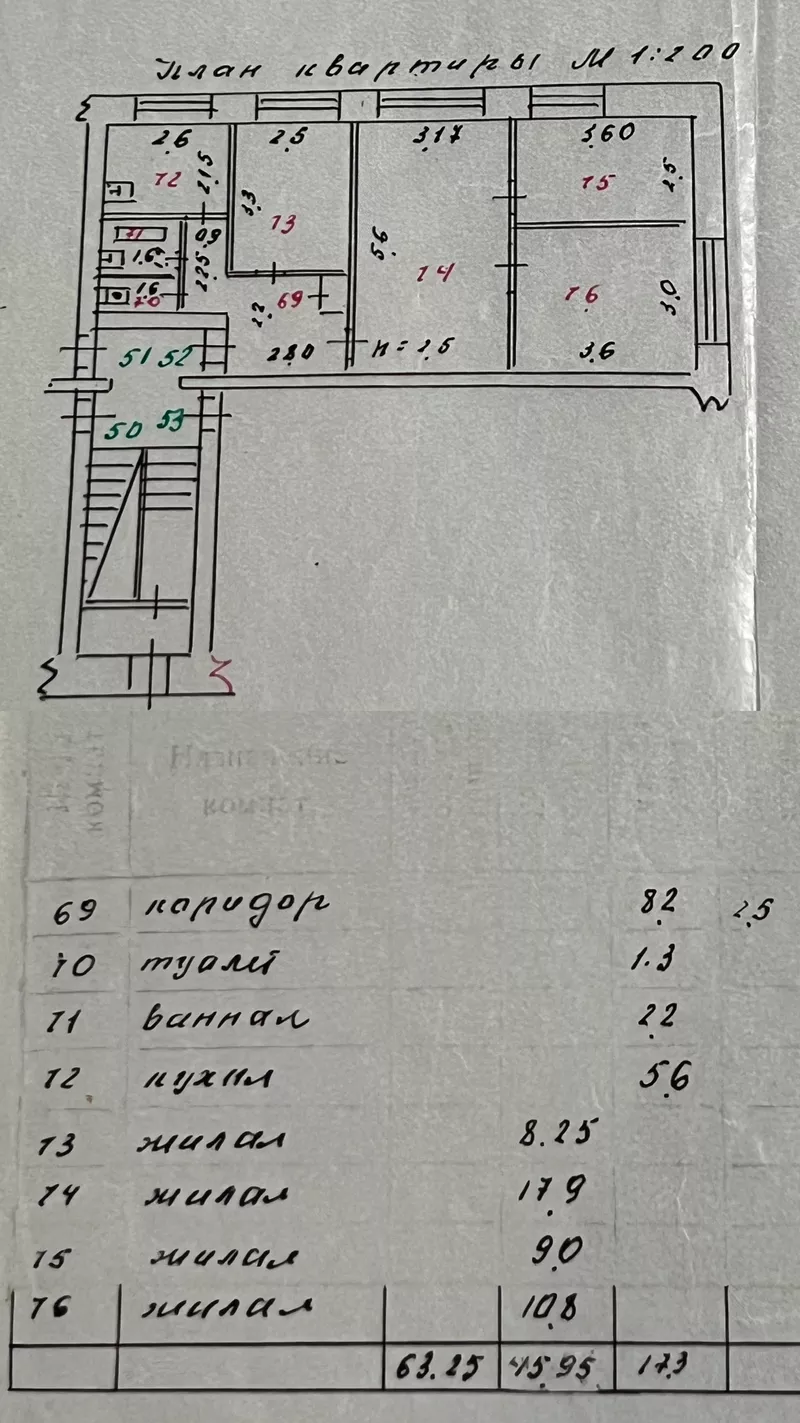 План квартиры М 1:200
2.6 2.5 3.17 3.60
72 2.15 75 2.5
3.3 73
71 0.9
1.6 2.25 5.6 74
1.6 70 69 76 3.0
2.2
51 52 2.80 h = 2.5 3.6
50 53
Название
комнат
69 каридор 8.2 2.5
70 туалет 1.3
71 ванная 2.2
72 кухня 5.6
73 жилая 8.25
74 жилая 17.9
75 жилая 9.0
76 жилая 10.8
63.25 45.95 17.3